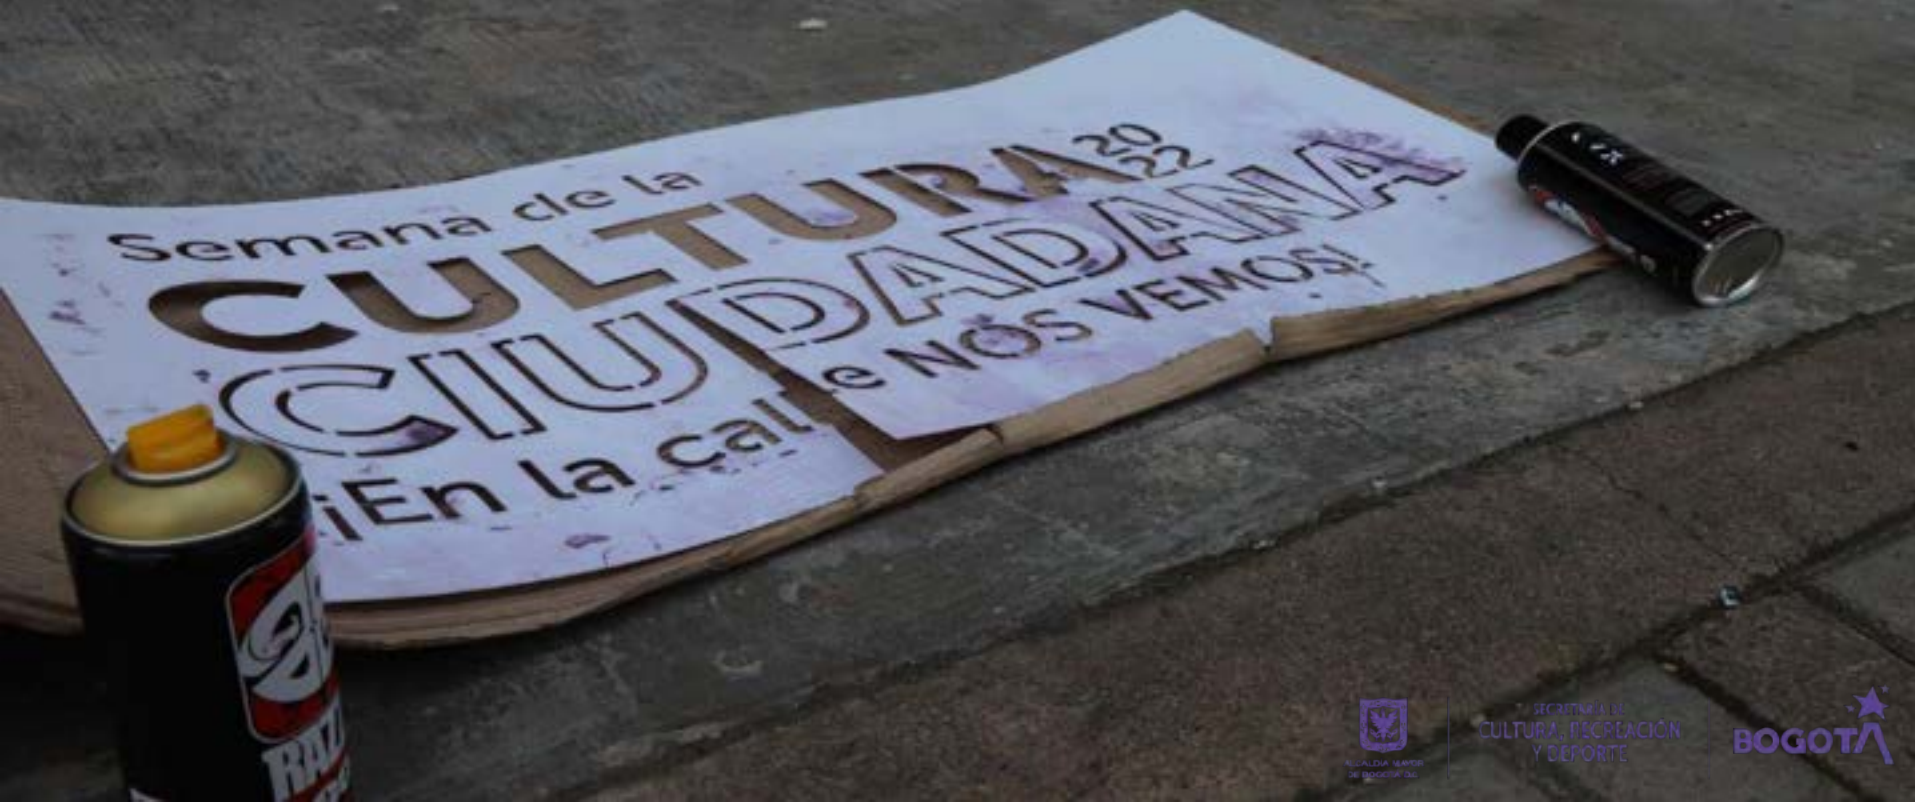 Semana de la
CULTURA 20
22
CIUDADANA
¡En la calle NOS VEMOS!
RAZ
ALCALDÍA MAYOR
DE BOGOTÁ D.C.
SECRETARÍA DE
CULTURA, RECREACIÓN
Y DEPORTE
BOGOTÁ